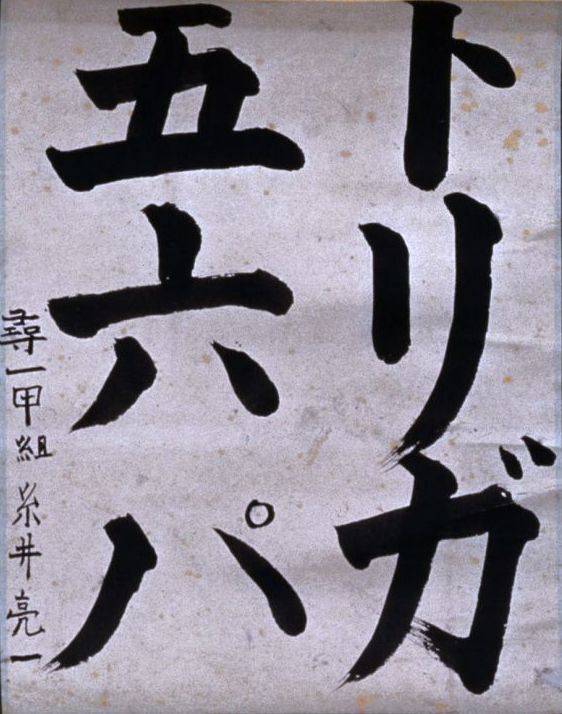 トリガ
五六パ
尋一甲組 糸井亮一